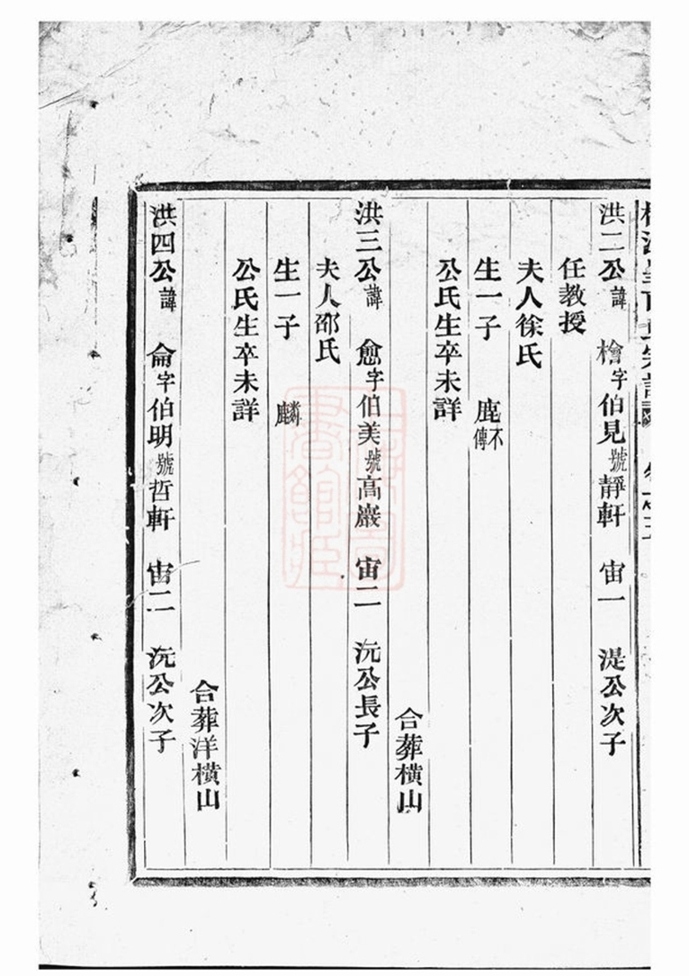 洪二公諱 檜字伯見號靜軒 宙一 湜公次子
任教授
夫人徐氏
生一子 鹿不傳
公氏生卒未詳
合葬橫山
洪三公諱 愈字伯美號高巖 宙二 沅公長子
夫人邵氏
生一子 麟
公氏生卒未詳
合葬洋橫山
洪四公諱 侖字伯明號哲軒 宙二 沅公次子